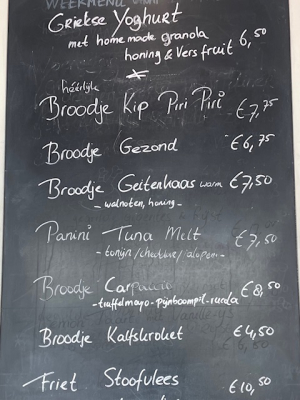 WEEKMENU
Griekse Yoghurt
met home made granola
honing & Vers fruit 6,50
heerlijke
Broodje Kip Piri Piri €7,75
Broodje Gezond €6,75
Broodje Geitenkaas warm €7,50
- walnoten, honing -
Panini Tuna Melt €7,50
- tonijn/cheddar/jalapen -
Broodje Carpaccio €8,50
- truffelmayo - pijnboompit - runda
Broodje Kalfskroket €4,50
Friet Stoofvlees €10,50